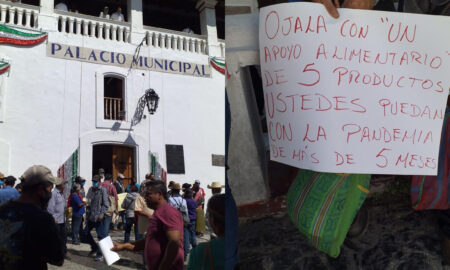 PALACIO MUNICIPAL
OJALA CON "UN
APOYO ALIMENTARIO"
DE 5 PRODUCTOS
USTEDES PUEDAN
CON LA PANDEMIA
DE MÁS DE 5 MESES